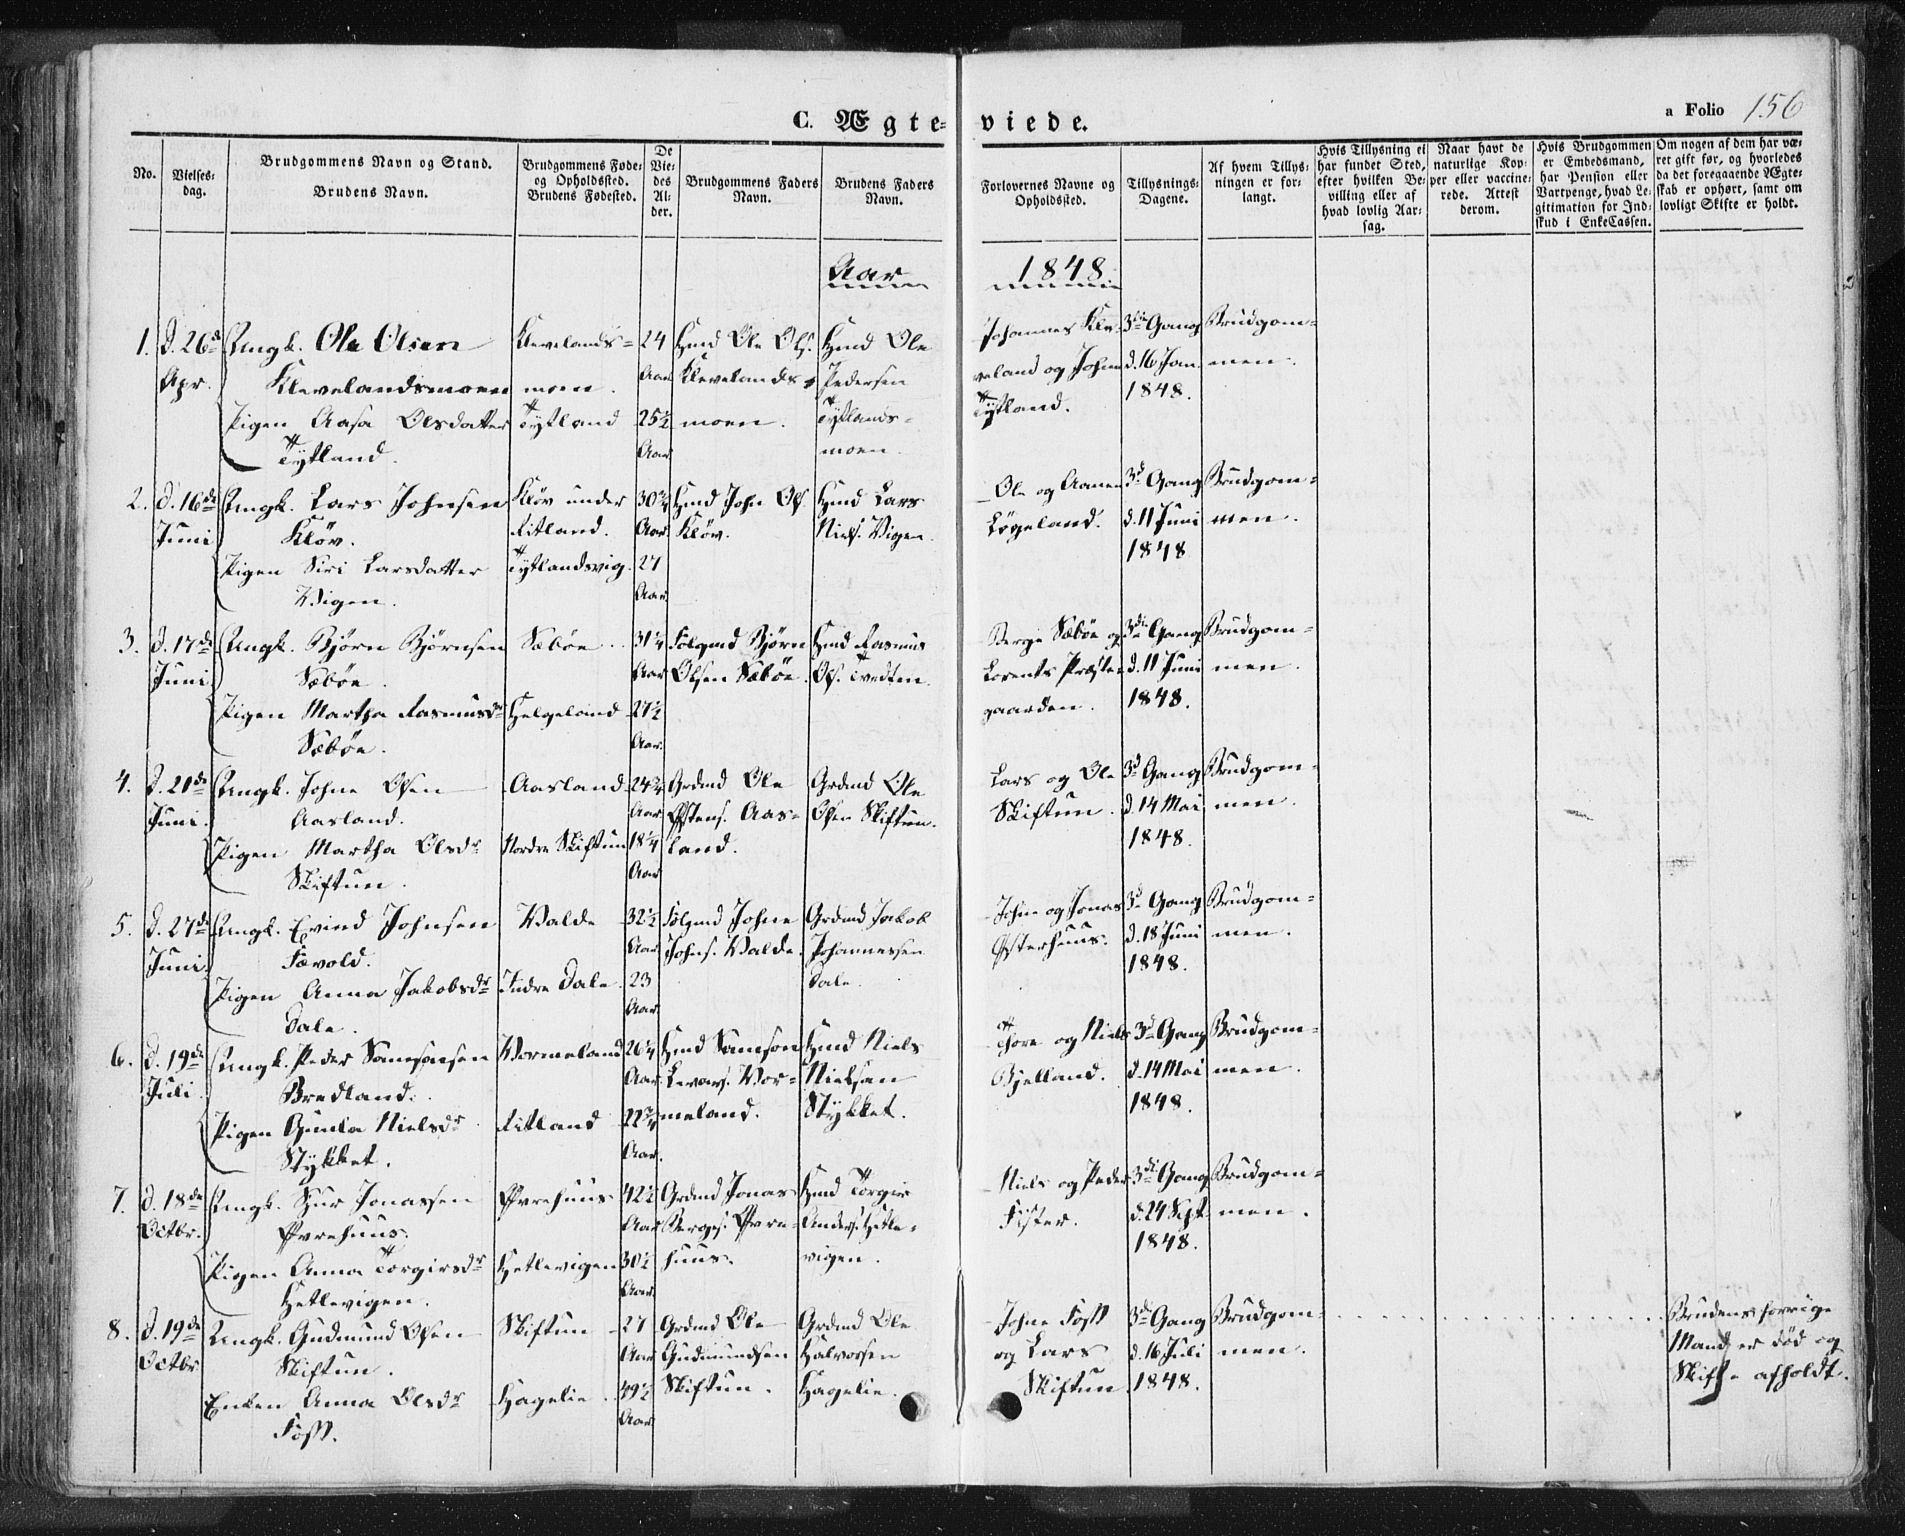 C. Ægte- viede.
a Folio 156
No.
Vielses-
dag.
Brudgommens Navn og Stand.
Brudens Navn.
Brudgommens Føde-
og Opholdssted.
Brudens Fødested.
De
Vie-
des
Al-
der.
Brudgommens Faders
Navn.
Brudens Faders
Navn.
Forlovernes Navne og
Opholdssted.
Tillysnings-
Dagene.
Af hvem Tillys-
ningen er for-
langt.
Hvis Tillysning ei
har fundet Sted,
efter hvilken Be-
villing eller af
hvad lovlig Aar-
sag.
Naar havt de
naturlige Kop-
per eller vaccine-
rede. Attest
derom.
Hvis Brudgommen
er Embedsmand,
har Pension eller
Vartpenge, hvad Le-
gitimation for Ind-
skud i EnkeCassen.
Om nogen af dem har væ-
ret gift før, og hvorledes
da det foregaaende Ægte-
skab er ophørt, samt om
lovligt Skifte er holdt.
Aar 1848.
1.
d. 26de
Apr.
Ungk. Ole Olsen
Klevelandsmoen
Pigen Aasa Olsdatter
Tytland.
Klevelands-
moen.
Tytland
24
Aar
25½
Aar
Hmd Ole Ols.
Klevelands-
moen.
Hmd Ole
Pedersen
Tytlands-
moen.
Johannes Kle-
veland og John
Tytland.
3die Gang
d. 16 Jan.
1848.
Brudgom-
men.
2.
d. 16de
Juni
Ungk. Lars Johnsen
Kløv.
Pigen Siri Larsdatter
Vigen.
Kløv under
Ritland.
Tytlandsvig.
30¾
Aar
27
Aar
Hmd John Ols.
Kløv.
Hmd Lars
Niels. Vigen.
Ole og Aanen
Løgeland.
3d Gang
d. 11 Juni
1848
Brudgom-
men.
3.
d. 17de
Juni
Ungk. Bjørn Bjørnsen
Sæbøe.
Pigen Martha Rasmusdr
Sæbøe.
Sæbøe
Helgeland
31¼
Aar
27½
Aar.
Folgmd Bjørn
Olsen Sæbøe.
Hmd Rasmus
Ols. Tvedten.
Berge Sæbøe og
Lorents Præste-
gaarden.
3die Gang
d. 11 Juni
1848.
Brudgom-
men.
4.
d. 21de
Juni.
Ungk. Johne Olsen
Aasland.
Pigen Martha Olsdr
Skiftun.
Aasland
Nordre Skiftun
24¾
Aar
18¼
Aar
Grdmd Ole
Østens. Aas-
land.
Grdmd Ole
Olsen Skiftun.
Lars og Ole
Skiftun.
3d Gang
d. 14 Mai
1848.
Brudgom-
men.
5.
d. 27de
Juni.
Ungk. Evind Johnsen
Fævold.
Pigen Anna Jakobsdr
Dale.
Valde
Indre Dale.
32½
Aar
23
Aar
Folgmd Johne
Johns. Valde.
Grdmd Jakob
Johannessen
Dale.
John og Jonas
Østerhuus.
3d Gang
d. 18 Juni
1848.
Brudgom-
men.
6.
d. 19de
Juli.
Ungk. Peder Samsonsen
Bredland.
Pigen Gunla Nielsdr
Stykket.
Vormeland
Ritland
26¼
Aar
22¾
Aar.
Hmd Samson
Levars. Vor-
meland.
Hmd Niels
Nielsen
Stykket.
Thore og Niels
Gjelland.
3d Gang
d. 14 Mai
1848.
Brudgom-
men.
7.
d. 18de
Octbr.
Ungk. Sjur Jonassen
Øvrehuus.
Pigen Anna Torgirsdr
Hetlevigen.
Øvrehuus
Hetlevigen
42½
Aar
30½
Aar
Grdmd Jonas
Berges. Øvre-
huus.
Hmd Torgir
Anders. Hetle-
vigen.
Niels og Peder
Fister.
3di Gang
d. 24 Sept.
1848.
Brudgom-
men.
8.
d. 19de
Octbr
Ungk. Gudmund Olsen
Skiftun.
Enken Anna Olsdr
Foss.
Skiftun
Hagelie.
27
Aar
49½
Aar
Grdmd Ole
Gudmundsen
Skiftun.
Grdmd Ole
Halvorsen
Hagelie.
Johne Foss
og Lars
Skiftun
3d Gang
d. 16 Juli
1848.
Brudgom-
men.
Brudens forrige
Mand er død og
Skifte afholdt.